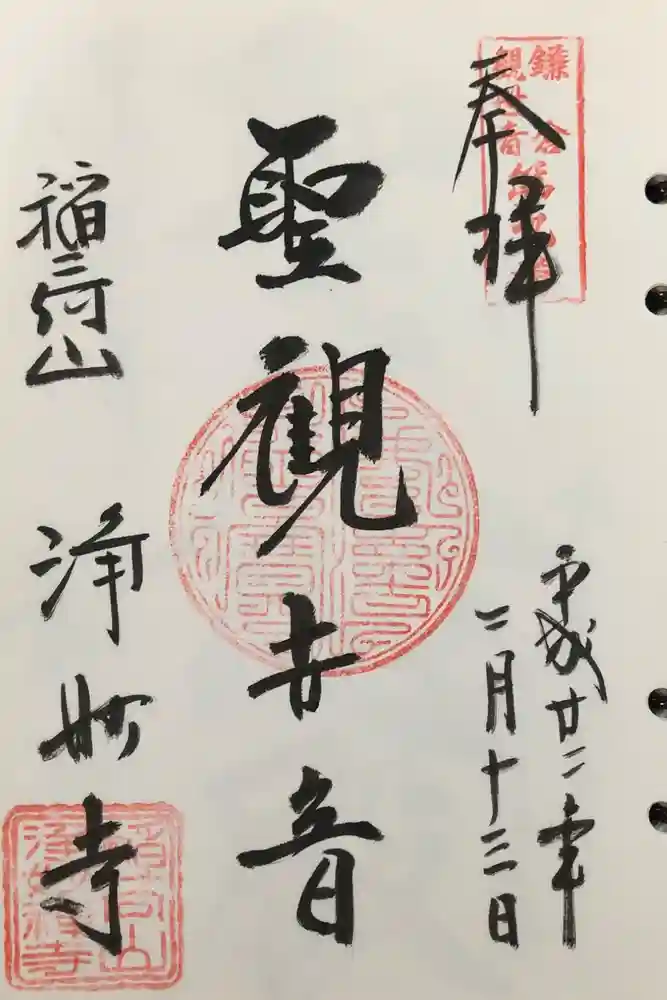 奉拝
鎌倉
観世音
平成廿二年
二月十三日
聖観世音
稲荷山
浄妙寺